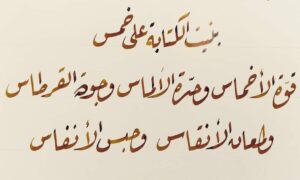 بنيت الكتابة على خمس
قوة الأخماس وحدة الألماس وجودة القرطاس
وطعان الأنقاس وحبس الأنفاس